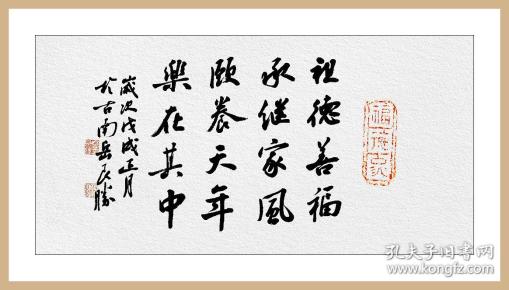 祖德善福
承继家風
頤养天年
樂在其中
歲次戊戌正月
於古南岳民勝
孔夫子旧书网
www.kongfz.com